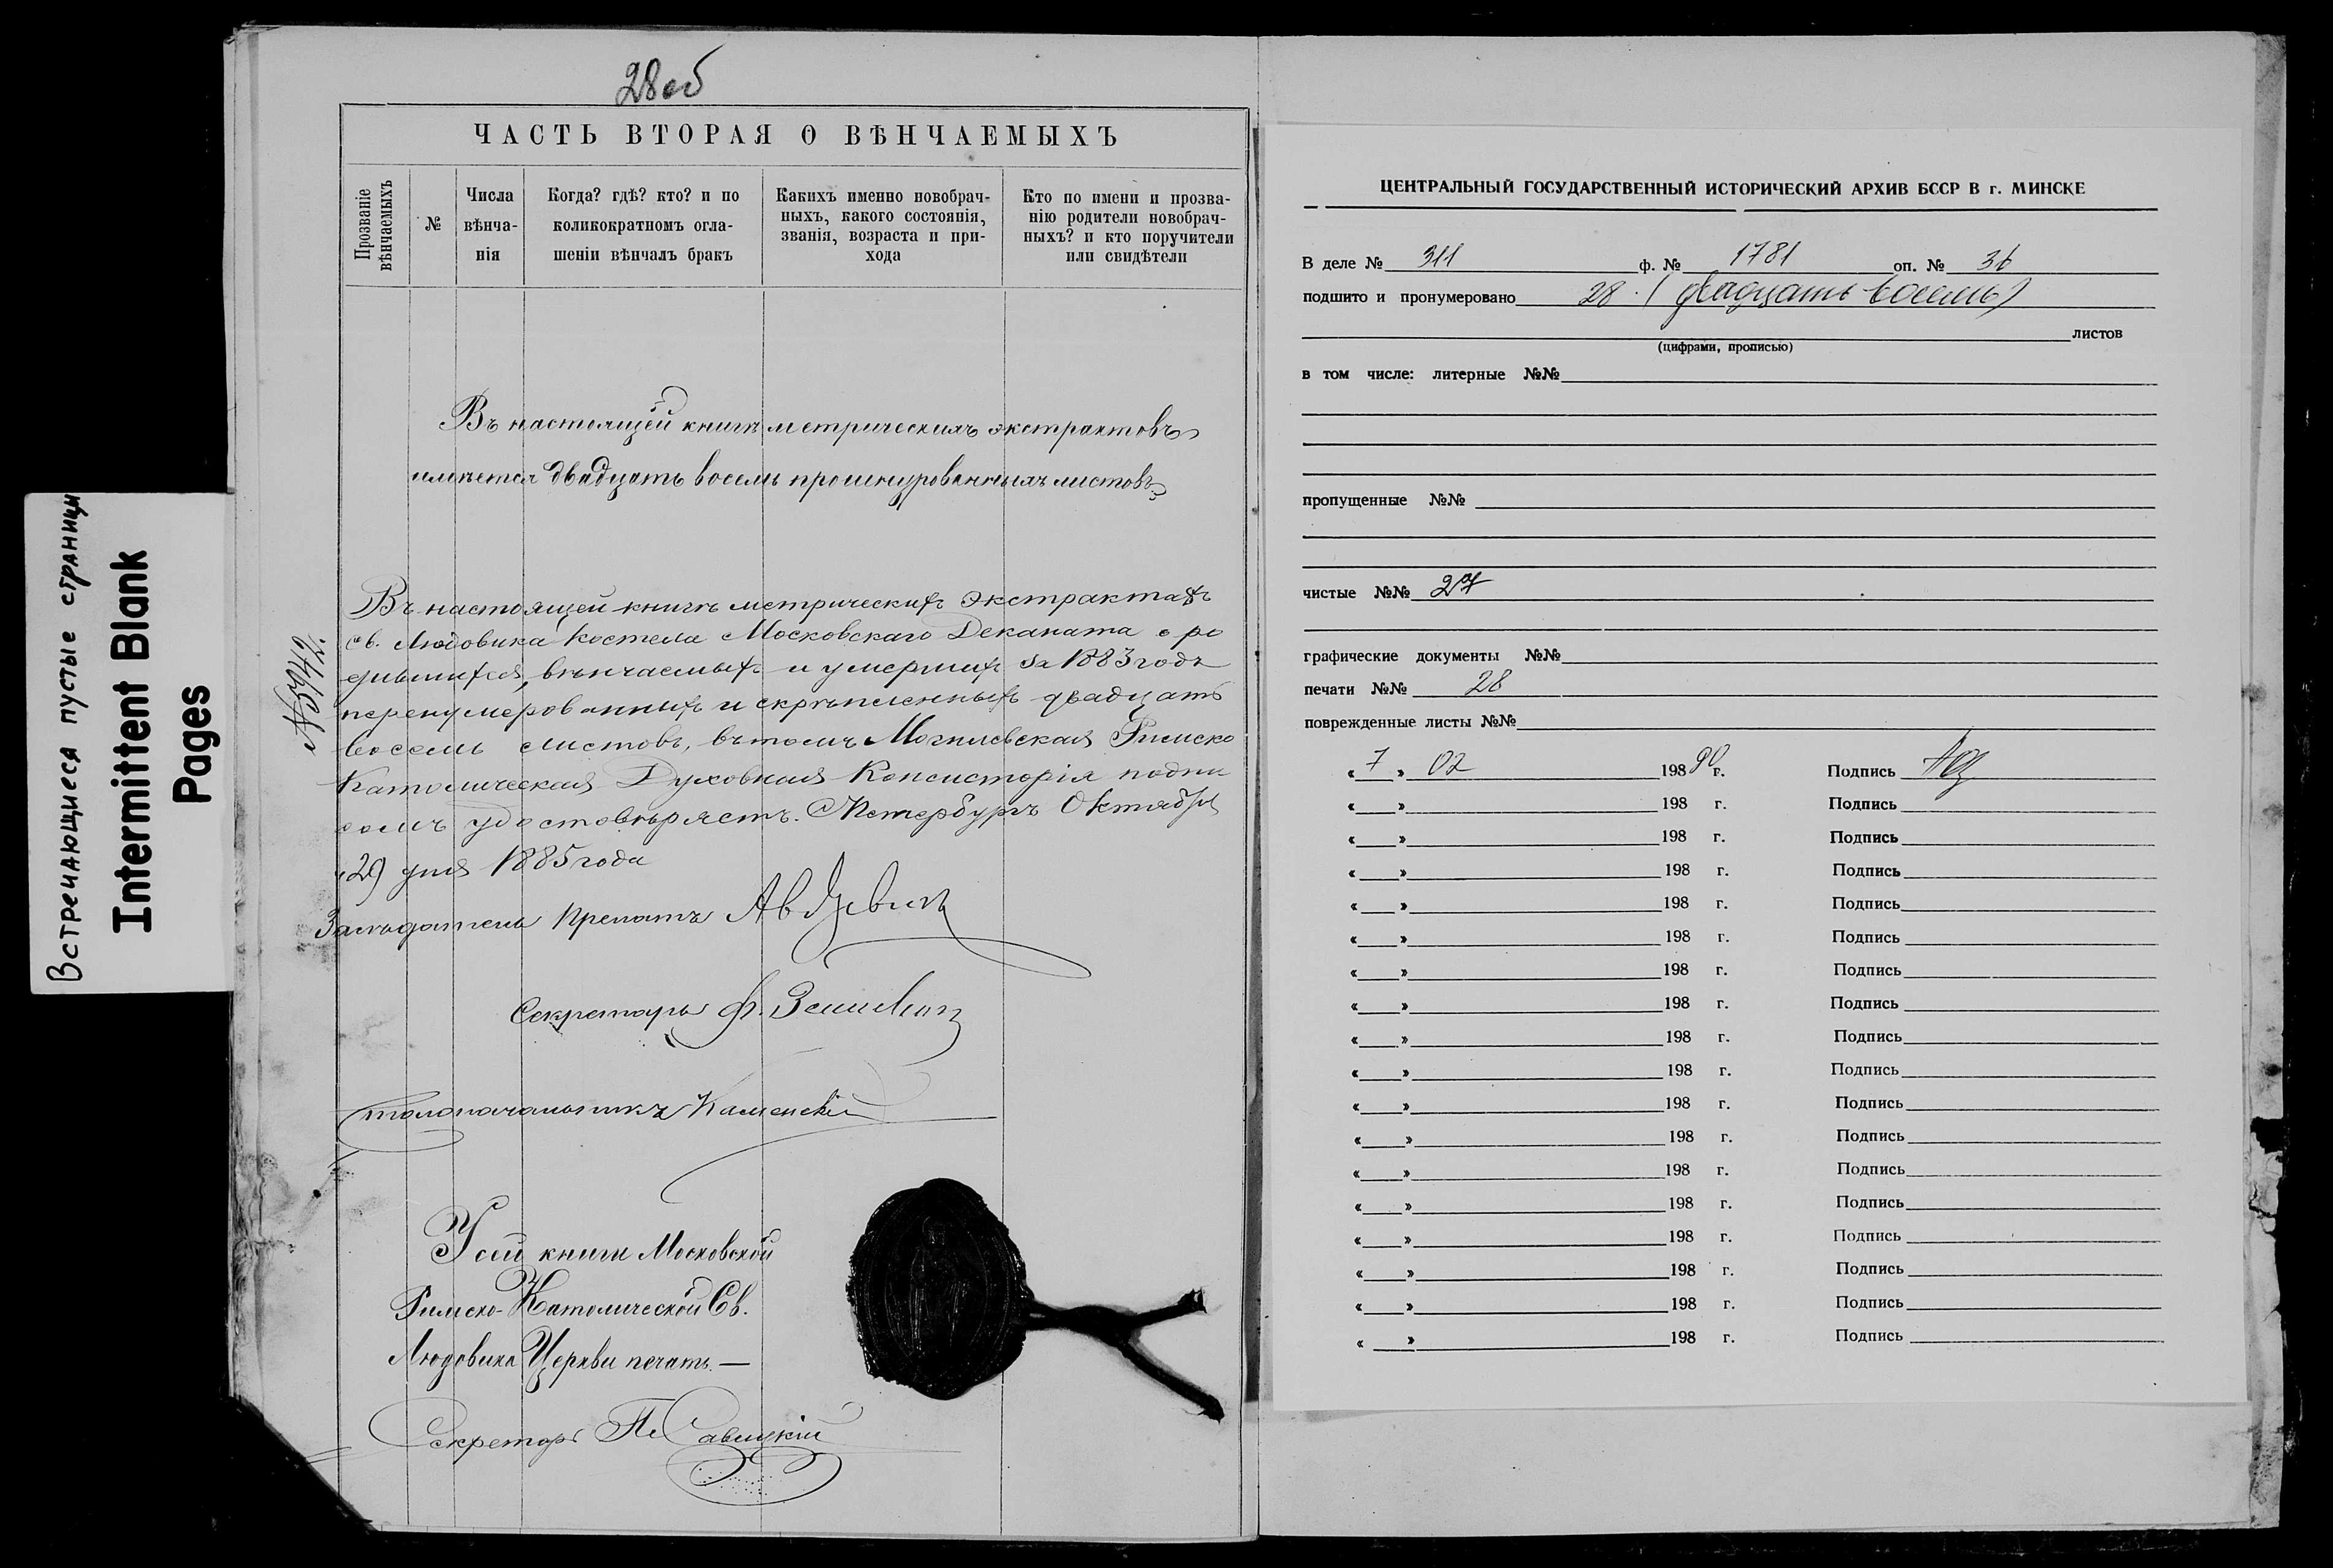 Встречающиеся пустые страницы
Intermittent Blank
Pages
28об
ЧАСТЬ ВТОРАЯ О ВѢНЧАЕМЫХЪ
Прозваніе
вѣнчаемыхъ
№
Числа
вѣнча-
нія
Когда? гдѣ? кто? и по
коликократномъ огла-
шеніи вѣнчалъ бракъ
Какихъ именно новобрач-
ныхъ, какого состоянія,
званія, возраста и при-
хода
Кто по имени и прозва-
нію родители новобрач-
ныхъ? и кто поручители
или свидѣтели
Въ настоящей книгѣ метрическихъ экстрактовъ
имѣется двадцать восемь прошнурованныхъ листовъ
№5942.
Въ настоящей книгѣ метрическихъ экстрактахъ
св. Людовика костела Московскаго Деканата о ро
дившихся, вѣнчаемыхъ и умершихъ за 1883 годъ
перенумерованныхъ и скрѣпленныхъ двадцать
восемь листовъ, въ томъ Могилевская Римско
Католическая Духовная Консисторія подпи
сомъ удостовѣряетъ. С Петербургъ Октября
29 дня 1885 года
Засѣдатель Прелатъ
Секретарь Ф.
Столоначальникъ Каменскій
У сей книги Московской
Римско-Католической Св.
Людовика Церкви печать.—
Секретарь П. Савицкій
ЦЕНТРАЛЬНЫЙ ГОСУДАРСТВЕННЫЙ ИСТОРИЧЕСКИЙ АРХИВ БССР В г. МИНСКЕ
В деле № 311 ф. № 1781 оп. № 36
подшито и пронумеровано 28 (двадцать восемь)
листов
(цифрами, прописью)
в том числе: литерные №№
пропущенные №№
чистые №№ 27
графические документы №№
печати №№ 28
поврежденные листы №№
« 7 » 02 198 90 г. Подпись
« » 198 г. Подпись
« » 198 г. Подпись
« » 198 г. Подпись
« » 198 г. Подпись
« » 198 г. Подпись
« » 198 г. Подпись
« » 198 г. Подпись
« » 198 г. Подпись
« » 198 г. Подпись
« » 198 г. Подпись
« » 198 г. Подпись
« » 198 г. Подпись
« » 198 г. Подпись
« » 198 г. Подпись
« » 198 г. Подпись
« » 198 г. Подпись
« » 198 г. Подпись